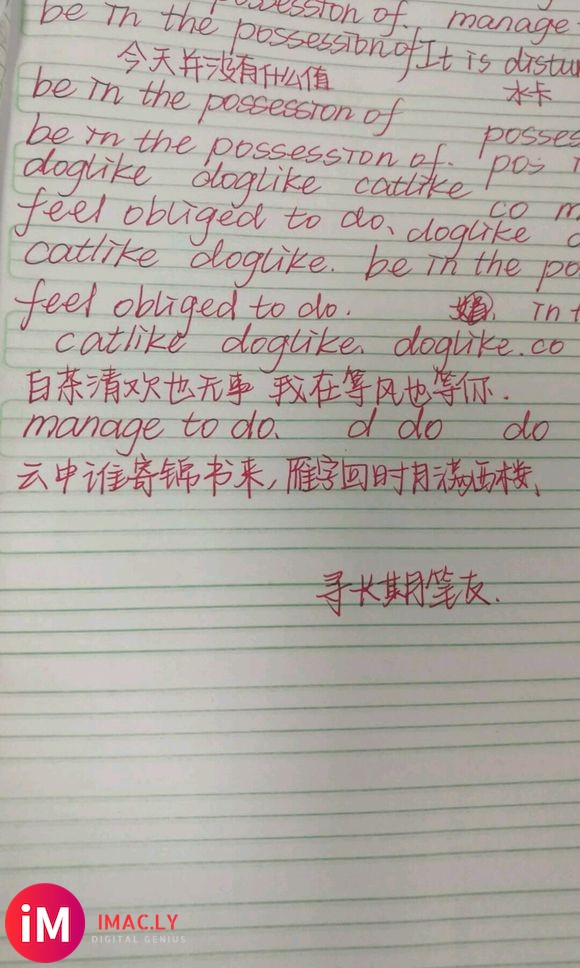 possession of. manage
be in the possession of It is distu
今天并没有什么值
be in the possession of
水卡
posses
be in the possession of. pos
doglike doglike catlike
co m
feel obliged to do、doglike c
catlike doglike. be in the po
feel obliged to do. in t
catlike doglike、doglike.co
白茶清欢也无事 我在等风也等你.
manage to do、 d do do
云中谁寄锦书来,雁字回时月满西楼、
寻长期笔友.
iM IMAC.LY
DIGITAL GENIUS